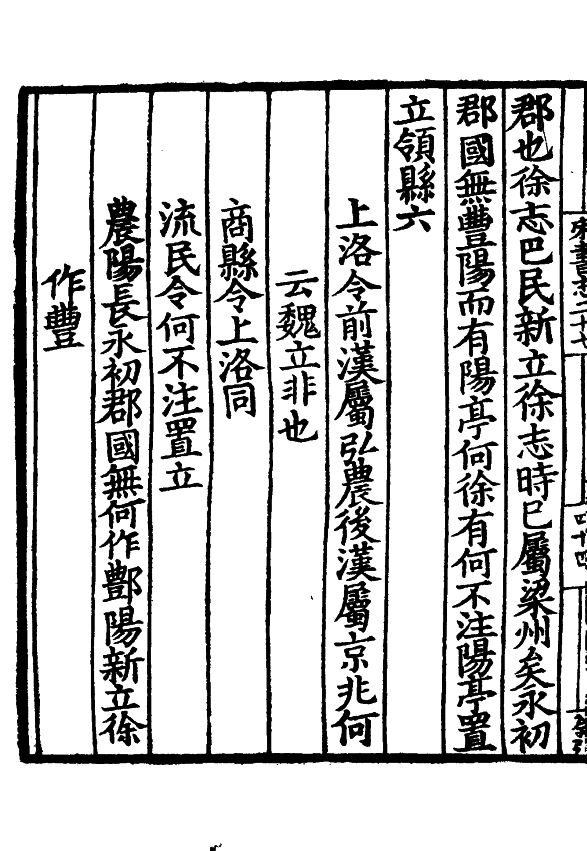 郡也徐志巴民新立徐志時已屬梁州矣永初
郡國無豐陽而有陽亭何徐有何不注陽亭置
立領縣六
上洛令前漢屬弘農後漢屬京兆何
云魏立非也
商縣令上洛同
流民令何不注置立
農陽長永初郡國無何作酆陽新立徐
作豐